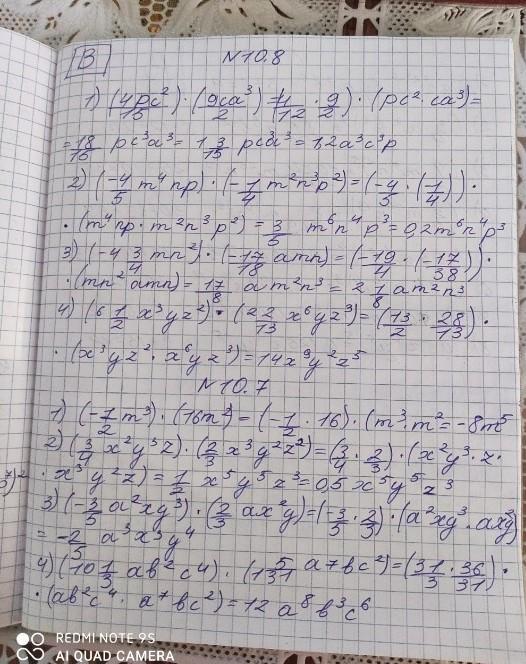 В
N10.8
1) (4pc²/15) · (9ca³/2) = (4/12 · 9/2) · (pc² · ca³) =
= 18/15 pc³a³ = 1 3/15 pc³a³ = 1,2a³c³p
2) (-4/5 m⁴np) · (-1/4 m²n³p²) = (-4/5 · (1/4)) ·
· (m⁴np · m²n³p²) = 3/5 m⁶n⁴p³ = 0,2m⁶n⁴p³
3) (-4 3/4 mn²) · (-17/18 amn) = (-19/4 · (-17/38)) ·
· (mn² amn) = 17/8 am²n³ = 2 1/8 am²n³
4) (6 1/2 x³yz²) · (2 2/13 x⁶yz³) = (13/2 · 28/13) ·
· (x³yz² · x⁶yz³) = 14x⁹y²z⁵
N10.7
1) (-1/2 m³) · (16m²) = (-1/2 · 16) · (m³ · m² = -8m⁵
2) (3/4 x²y³z) · (2/3 x³y²z²) = (3/4 · 2/3) · (x²y³ · z ·
· x³y²z) = 1/2 x⁵y⁵z³ = 0,5x⁵y⁵z³
3) (-3/5 a²xy³) · (2/3 ax²y) = (-3/5 · 2/3) · (a²xy³ · ax²y)
= -2/5 a³x³y⁴
4) (10 1/3 ab²c⁴) · (1 5/31 a⁷bc²) = (31/3 · 36/31) ·
· (ab²c⁴ · a⁷bc²) = 12a⁸b³c⁶
REDMI NOTE 9S
AI QUAD CAMERA